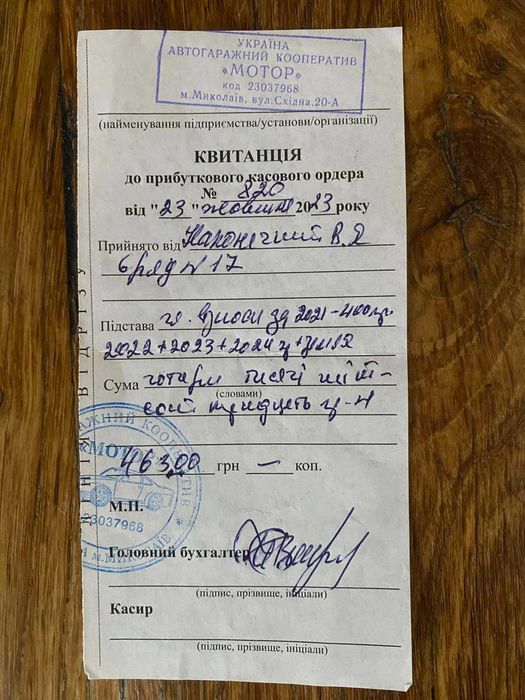 УКРАЇНА
АВТОГАРАЖНИЙ КООПЕРАТИВ
«МОТОР»
код 23037968
м.Миколаїв, вул.Східна.20-А
(найменування підприємства/установи/організації)
КВИТАНЦІЯ
до прибуткового касового ордера
№ 820
від "23" жовтня 2023 року
Прийнято від Наконечний В.Д
6 ряд N 17
Підстава чл. Вноси за 2021-400гр
2022+2023+2024
Сума чотири тисячі шіст-
(словами)
сот тридцять
4630,0 грн — коп.
М.П.
Головний бухгалтер
(підпис, прізвище, ініціали)
Касир
(підпис, прізвище, ініціали)
ВІДРІЗУ
АРАЖНИЙ КООПЕРАТИВ
«МОТО
23037968
м.МИКОЛАЇВ